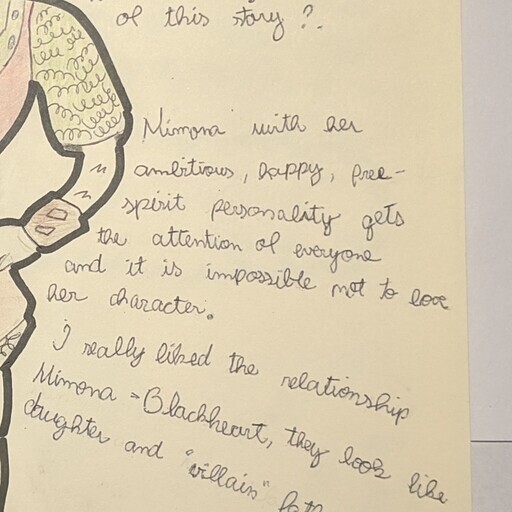 of this story?.
Mimona with her
ambitious, happy, free-
spirit personality gets
the attention of everyone
and it is impossible not to love
her character.
I really liked the relationship
Mimona - Blackheart, they look like
daughter and "villain"